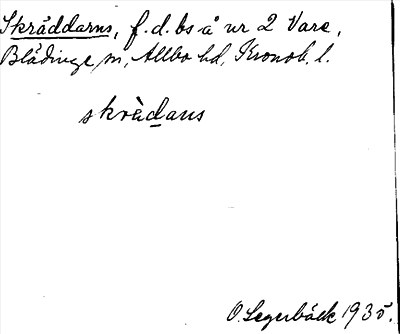 Skräddarns, f.d. bs å nr 2 Vare,
Blädinge sn, Allbo hd, Kronob. l.
skrädans
O. Legerbäck 1935.